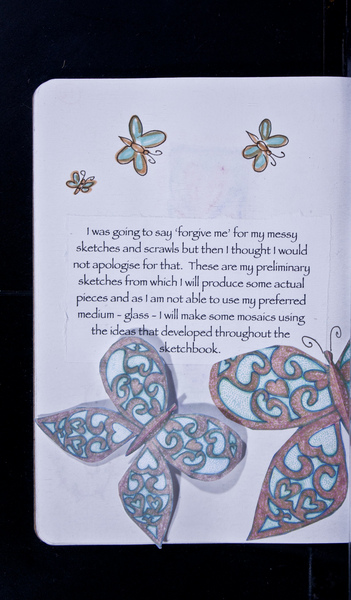 I was going to say 'forgive me' for my messy
sketches and scrawls but then I thought I would
not apologise for that.  These are my preliminary
sketches from which I will produce some actual
pieces and as I am not able to use my preferred
medium - glass - I will make some mosaics using
the ideas that developed throughout the
sketchbook.